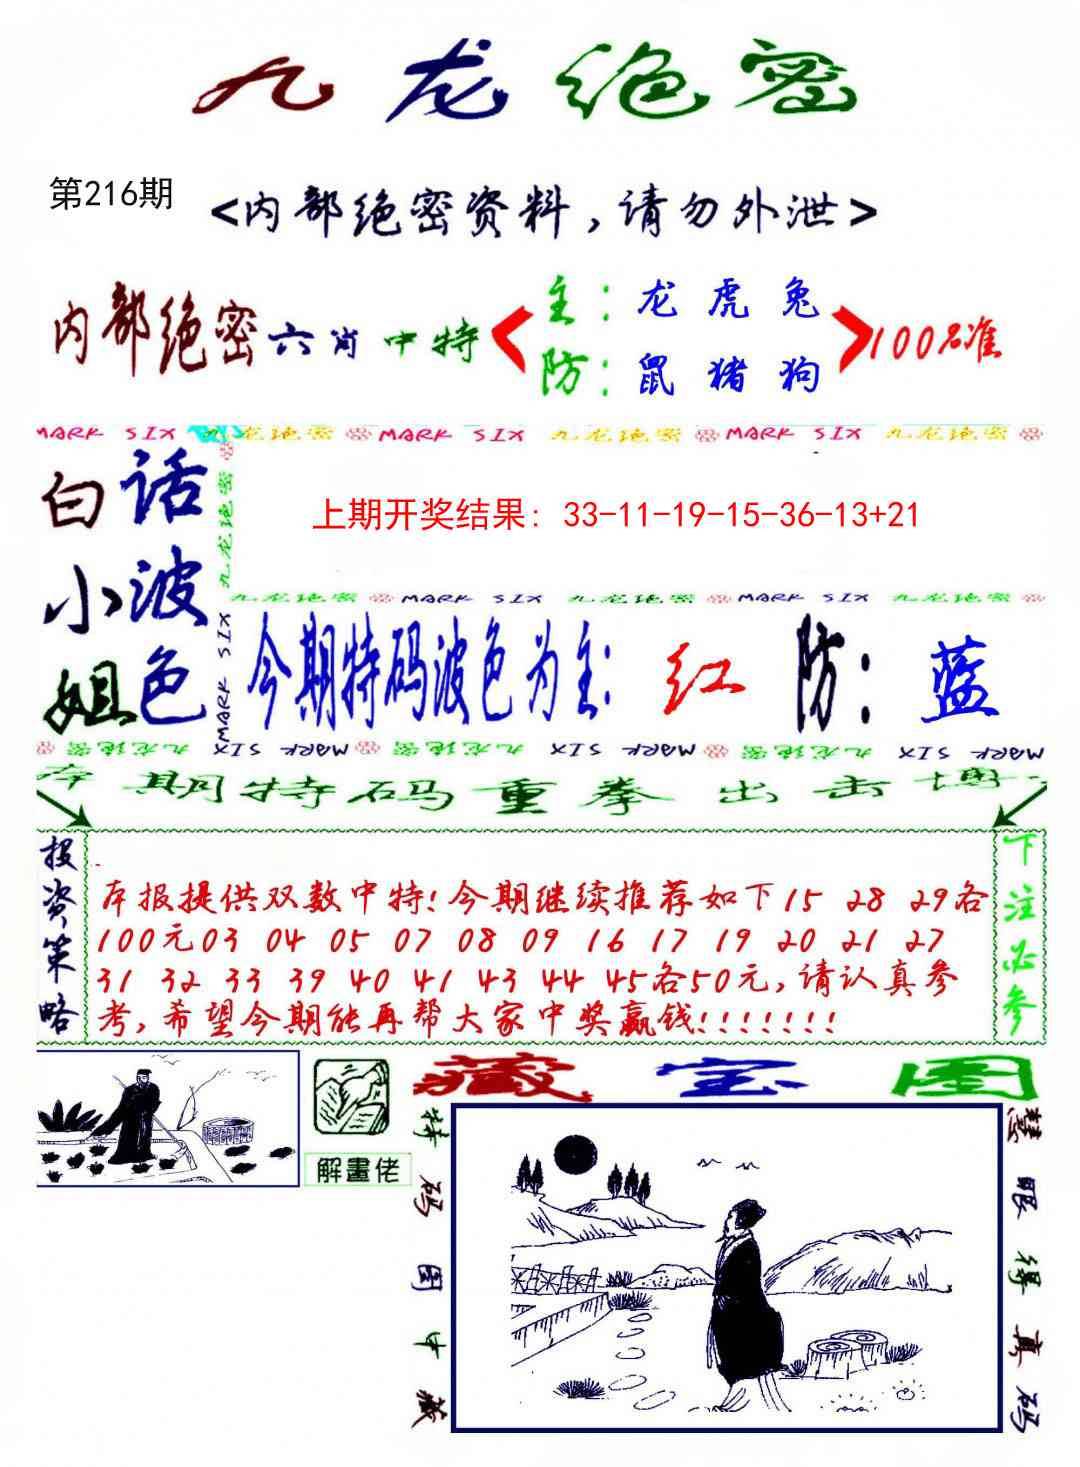 九龙绝密
第216期
<内部绝密资料,请勿外泄>
内部绝密六肖中特
主：龙 虎 兔
防：鼠 猪 狗
100%准
MARK SIX 九龙绝密 MARK SIX 九龙绝密 MARK SIX 九龙绝密
九龙绝密
MARK SIX
白话
小波
姐色
上期开奖结果: 33-11-19-15-36-13+21
九龙绝密 MARK SIX 九龙绝密 MARK SIX 九龙绝密
今期特码波色为主: 红 防: 蓝
九龙绝密 MARK SIX 九龙绝密 MARK SIX 九龙绝密 MARK SIX
本期特码重拳出击博
投资策略
本报提供双数中特!今期继续推荐如下15 28 29各
100元03 04 05 07 08 09 16 17 19 20 21 27
31 32 33 39 40 41 43 44 45各50元,请认真参
考,希望今期能再帮大家中奖赢钱!!!!!!!
下注必参
解畫佬
藏宝图
特码图中藏
慧眼得真码